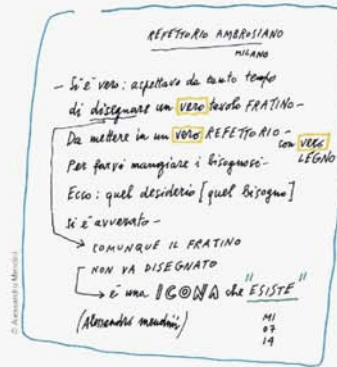 REFETTORIO AMBROSIANO
MILANO
– Sì è vero: aspettavo da tanto tempo
di disegnare un vero tavolo FRATINO –
Da mettere in un vero REFETTORIO –
con vero LEGNO
Per farvi mangiare i bisognosi –
Ecco: quel desiderio [quel bisogno]
si è avverato –
COMUNQUE IL FRATINO
NON VA DISEGNATO
è una ICONA che "ESISTE"
(Alessandro Mendini)
MI
07
14
© Alessandro Mendini